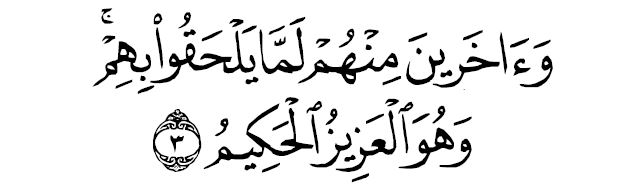 وَءَاخَرِينَ مِنْهُمْ لَمَّا يَلْحَقُوا۟ بِهِمْ ۚ
وَهُوَ ٱلْعَزِيزُ ٱلْحَكِيمُ ٣